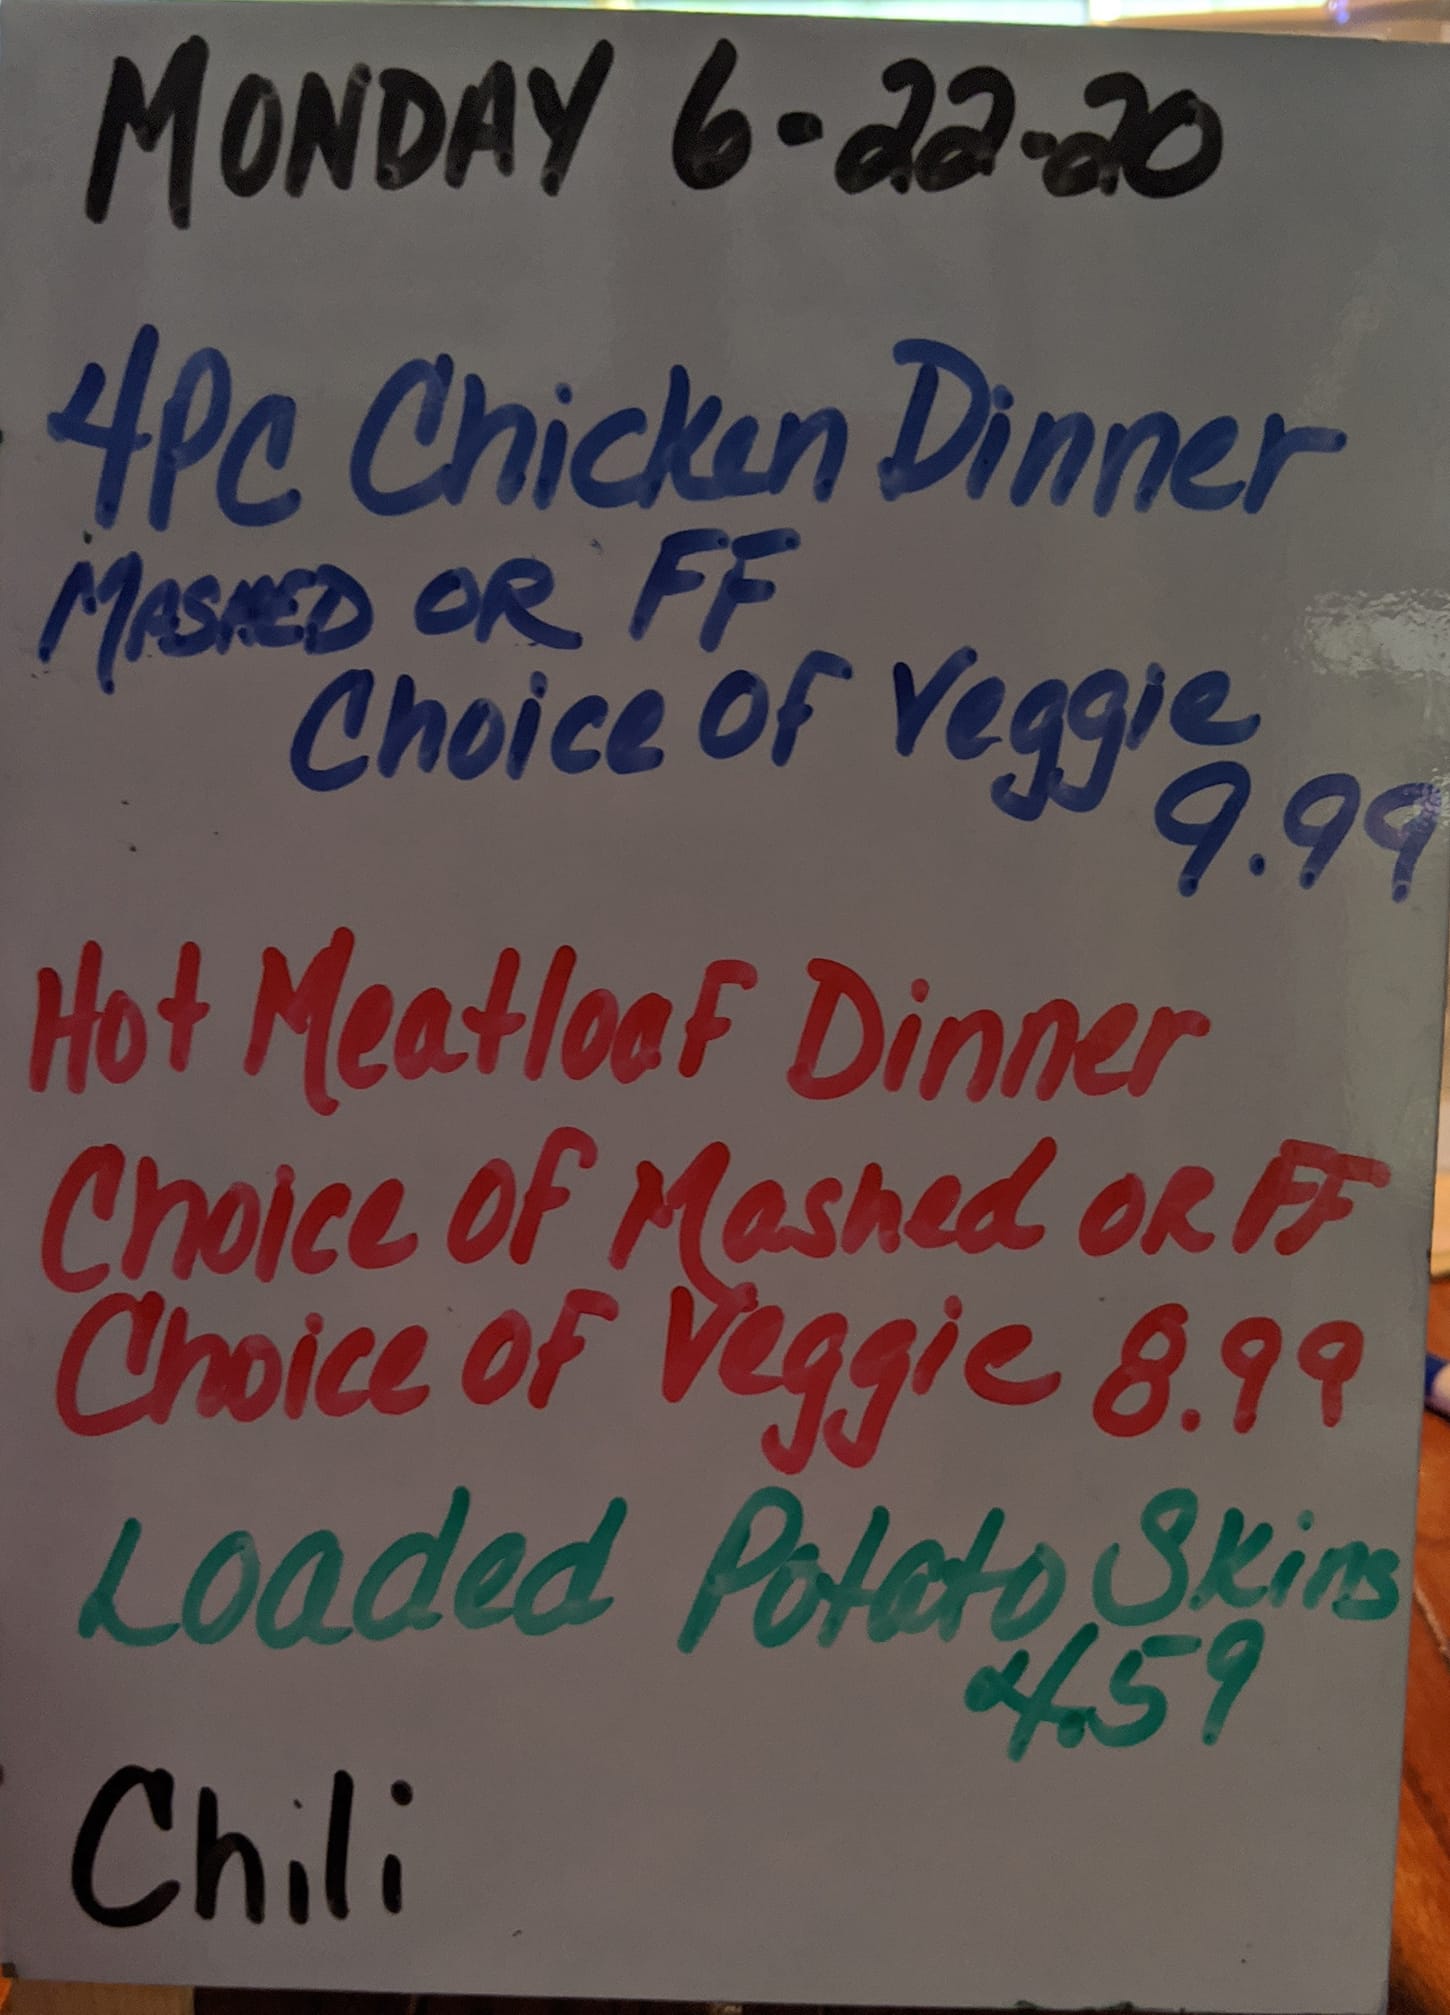 MONDAY 6-22-20
4PC Chicken Dinner
MASHED OR FF
Choice Of Veggie
9.99
Hot Meatloaf Dinner
Choice Of Mashed OR FF
Choice Of Veggie 8.99
Loaded Potato Skins
4.59
Chili